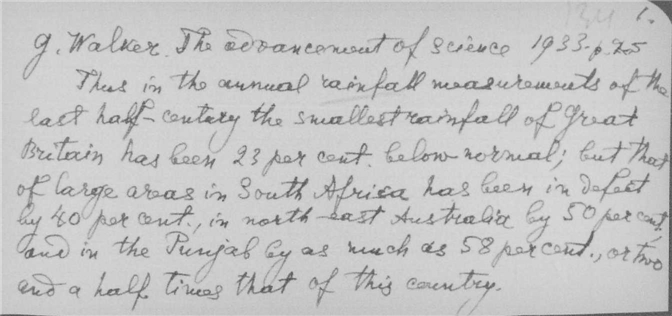 134 1.
G. Walker. The advancement of science 1933. p. 25
Thus in the annual rainfall measurements of the
last half-century the smallest rainfall of Great
Britain has been 23 per cent. below normal; but that
of large areas in South Africa has been in defect
by 40 per cent., in north-east Australia by 50 per cent,
and in the Punjab by as much as 58 per cent., or two
and a half times that of this country.